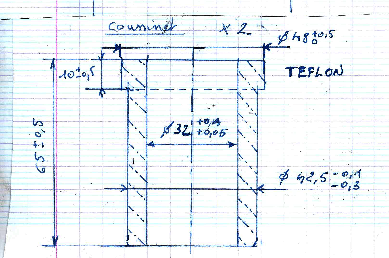 Coussinet x 2
Ø 48 ± 0,5
0
10 ± 0,5
TEFLON
65 ± 0,5
Ø 32 +0,1
+0,05
Ø 42,5 -0,1
-0,3